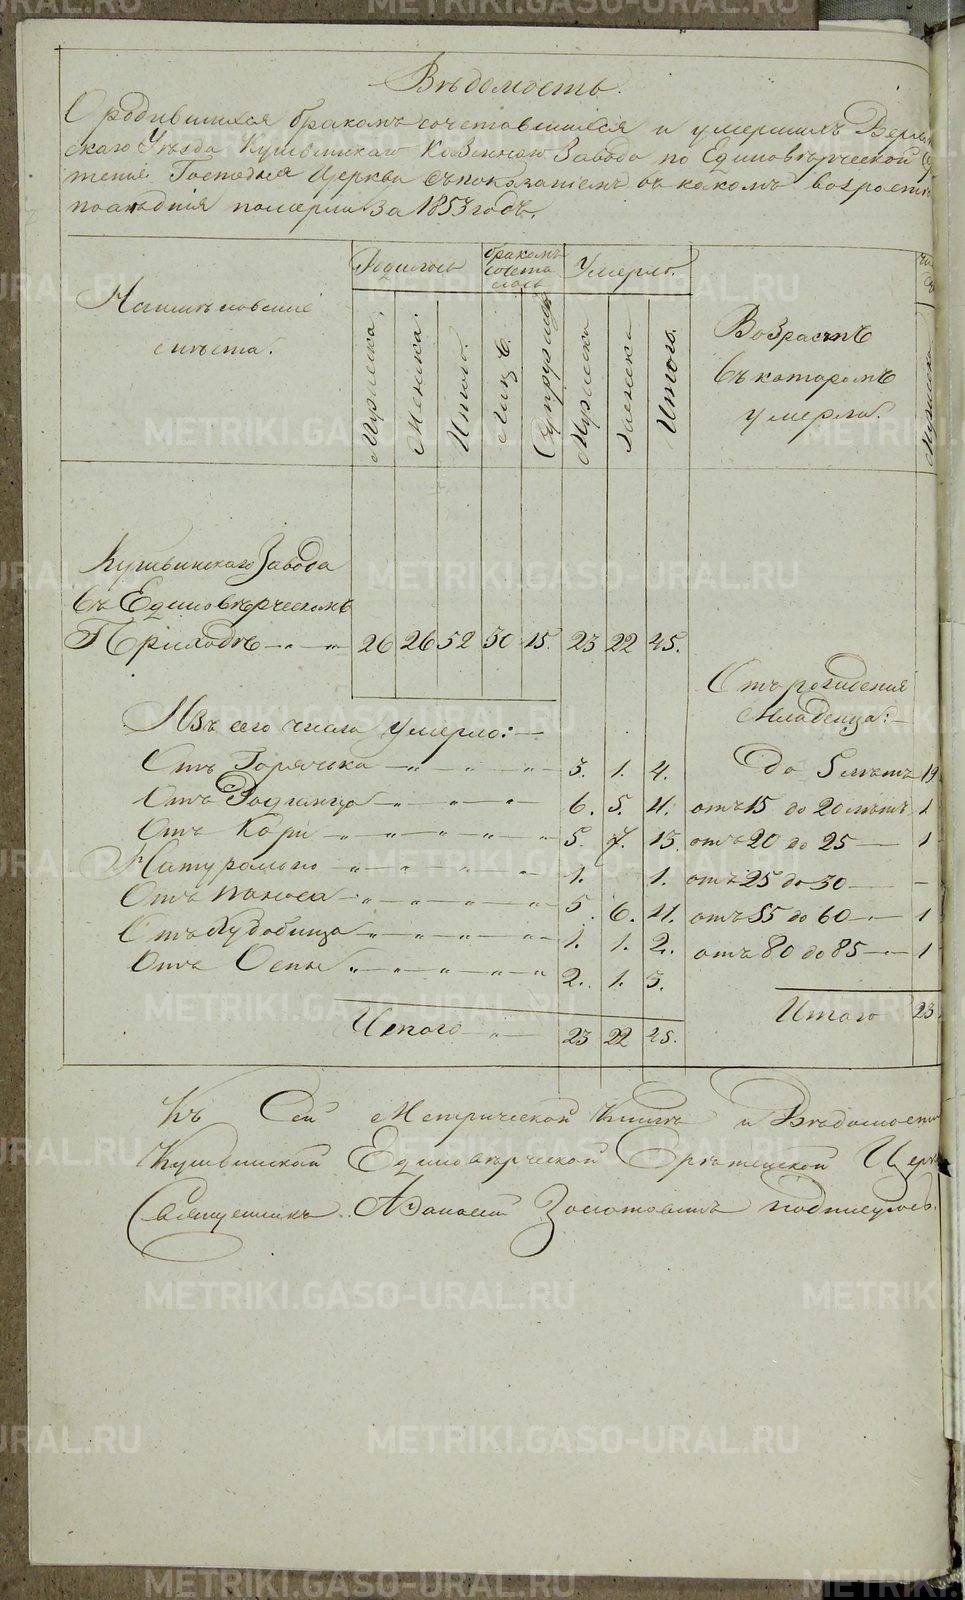 Вѣдомость.
О родившихся бракомъ сочетавшихся и умершихъ Верхо
скаго Уѣзда Кушвинскаго Казеннаго Завода по Единовѣрческой
тенія Господня Церкви съ показаніемъ въ какомъ возрастѣ
послѣднія померли за 1853 годъ.
Наименованіе
мѣста.
Родилось
бракомъ
сочета
лось
Умерло.
Мужеска.
Женска.
Итого.
Лицъ.
Супружъ
Мужеска
Женска
Итого.
Возрастъ
въ которомъ
умерли.
Мужеска
Кушвинскаго Завода
въ Единовѣрческомъ
Приходѣ 26 26 52 30 15. 23 22 45.
Отъ рожденія
Младенца:
Изъ сего числа умерло:
Отъ Горячька 3. 1. 4. До 5 лѣтъ 19
Отъ Родимца 6. 5. 11. отъ 15 до 20 лѣтъ 1
Отъ Кори 5. 7. 13. отъ 20 до 25 1
Натурально 1. 1. отъ 25 до 30 —
Отъ поноса 5. 6. 11. отъ 55 до 60 1
Отъ Худобища 1. 1. 2. отъ 80 до 85 1
Отъ Оспы 2. 1. 3.
Итого 23 22 45. Итого 23
Къ Сей Метрической Книгѣ и Вѣдомости
Кушвинской Единовѣрческой Срѣтенской Церк
Священникъ Афанасій Золотовинъ подписуюсь.
METRIKI.GASO-URAL.RU